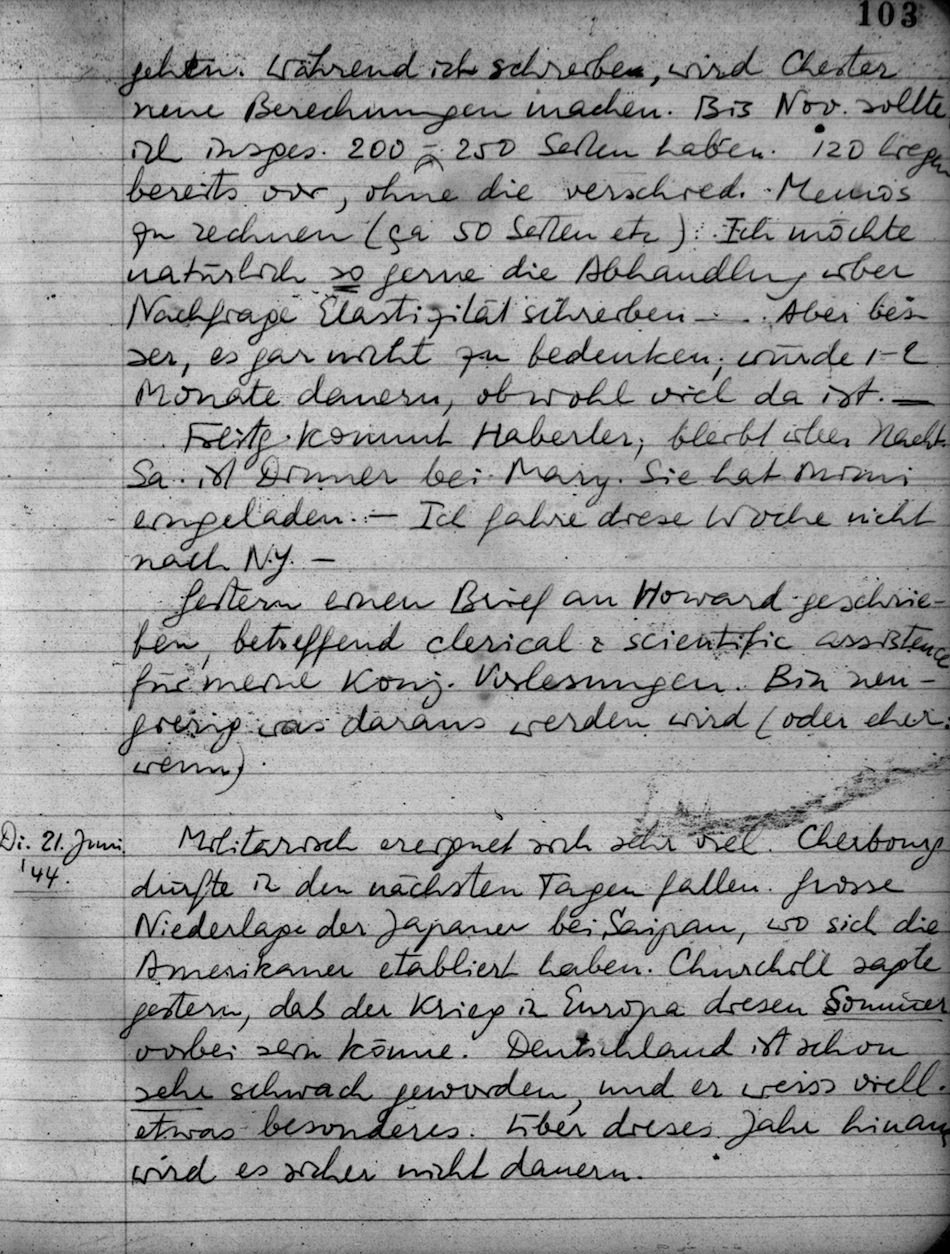 103
gehen. Während ich schreibe, wird Chester
neue Berechnungen machen. Bis Nov. sollte
ich insges. 200 - 250 Seiten haben. 120 liegen
bereits vor, ohne die verschied. Memos
zu rechnen (ça 50 Seiten etc). Ich möchte
natürlich so gerne die Abhandlung über
Nachfrage Elastizität schreiben – . . Aber bes-
ser, es gar nicht zu bedenken; würde 1-2
Monate dauern, obwohl viel da ist. —
Freitg. kommt Haberler, bleibt über Nacht.
Sa. ist Dinner bei Mary. Sie hat mimi
eingeladen. – Ich fahre diese Woche nicht
nach N.Y. –
Gestern einen Brief an Howard geschrie-
ben, betreffend clerical & scientific assistence
für meine Konj. Vorlesungen. Bin neu-
gierig was daraus werden wird (oder eher:
wenn).
Di. 21. Juni
'44.
Militärisch ereignet sich sehr viel. Cherbourg
dürfte in den nächsten Tagen fallen. Grosse
Niederlage der Japaner bei Saipan, wo sich die
Amerikaner etabliert haben. Churchill sagte
gestern, daß der Krieg in Europa diesen Sommer
vorbei sein könne. Deutschland ist schon
sehr schwach geworden, und er weiss viell.
etwas besonderes. Über dieses Jahr hinaus
wird es sicher nicht dauern.